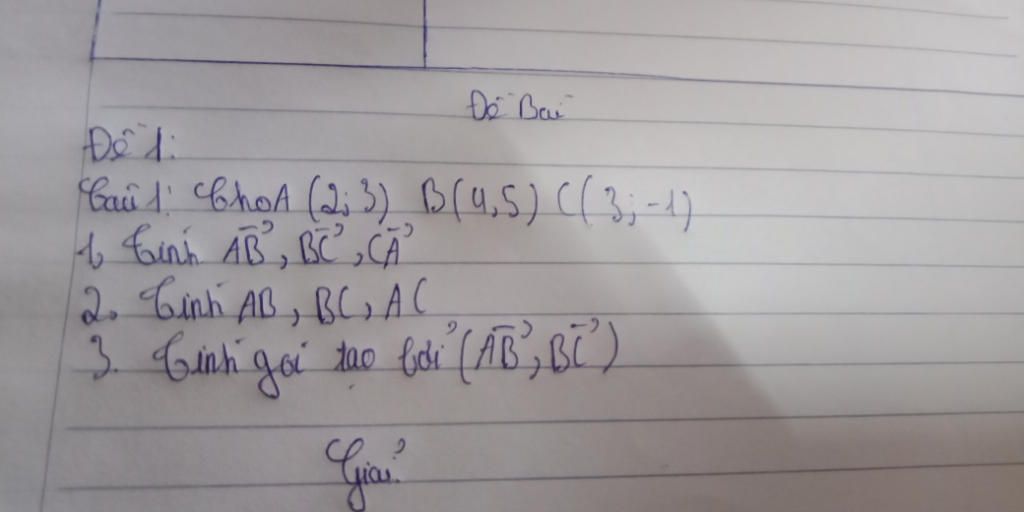 Đề Bài
Đề 1:
Câu 1: Cho A (2; 3) B(4, 5) C( 3; -1)
1, Tính AB→, BC→, CA→
2. Tính AB, BC, AC
3. Tính góc tạo bởi (AB→, BC→)
Giải